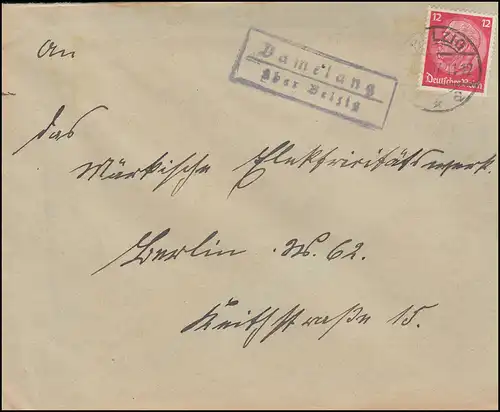 An
Damelang
über Belzig
12 12
Deutsches Reich
das
Märkische Elektricitätswerk.
Berlin W. 62.
Keithstraße 15.